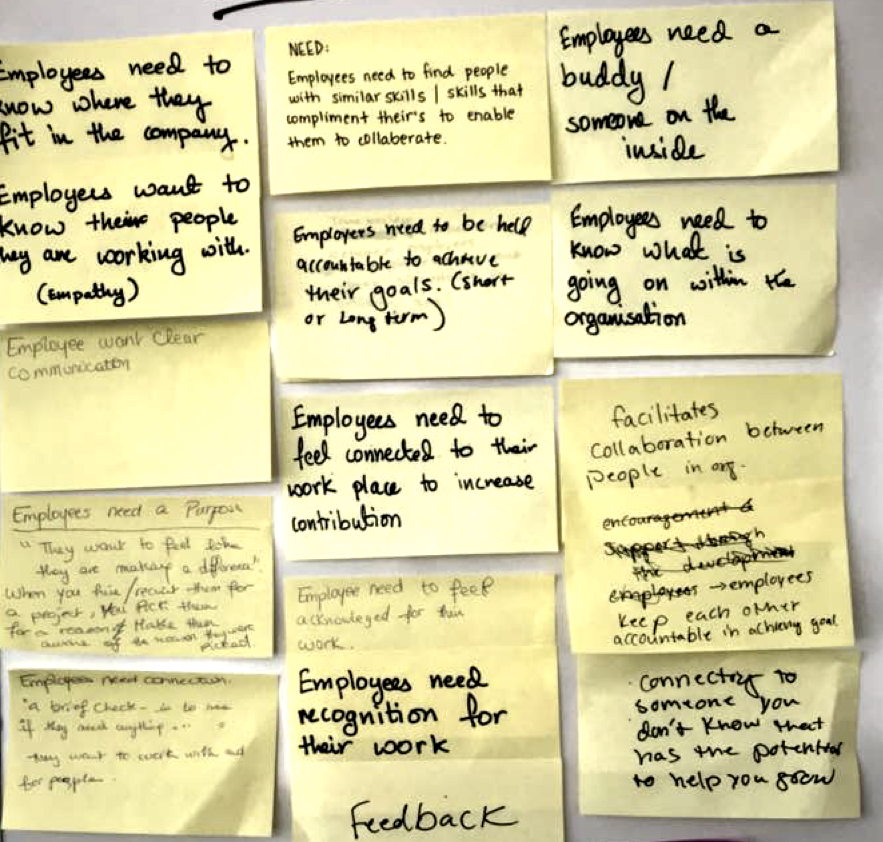 Employees need to
know where they
fit in the company.
Employers want to
know their people
they are working with.
(Empathy)
Employee want Clear
communication
Employees need a Purpose
"They want to feel like
they are making a difference"
When you hire/recruit them for
a project, you Pick them
for a reason Make them
aware of the reason they were
picked.
Employees need connection.
"a brief check-in to see
if they need anything... "
they want to work with and
for people.
NEED:
Employees need to find people
with similar skills | skills that
compliment their's to enable
them to collaberate.
Employers need to be held
accountable to achieve
their goals. (short
or Long term)
Employees need to
feel connected to their
work place to increase
contribution
Employee need to feel
acknowleged for their
work.
Employees need
recognition for
their work
Feedback
Employees need a
buddy /
someone on the
inside
Employees need to
know what is
going on within the
organisation
facilitates
collaboration between
people in org.
encouragement &
support through
the development
employees → employees
keep each other
accountable in achieving goal
· Connecting to
someone you
don't know that
has the potential
to help you grow